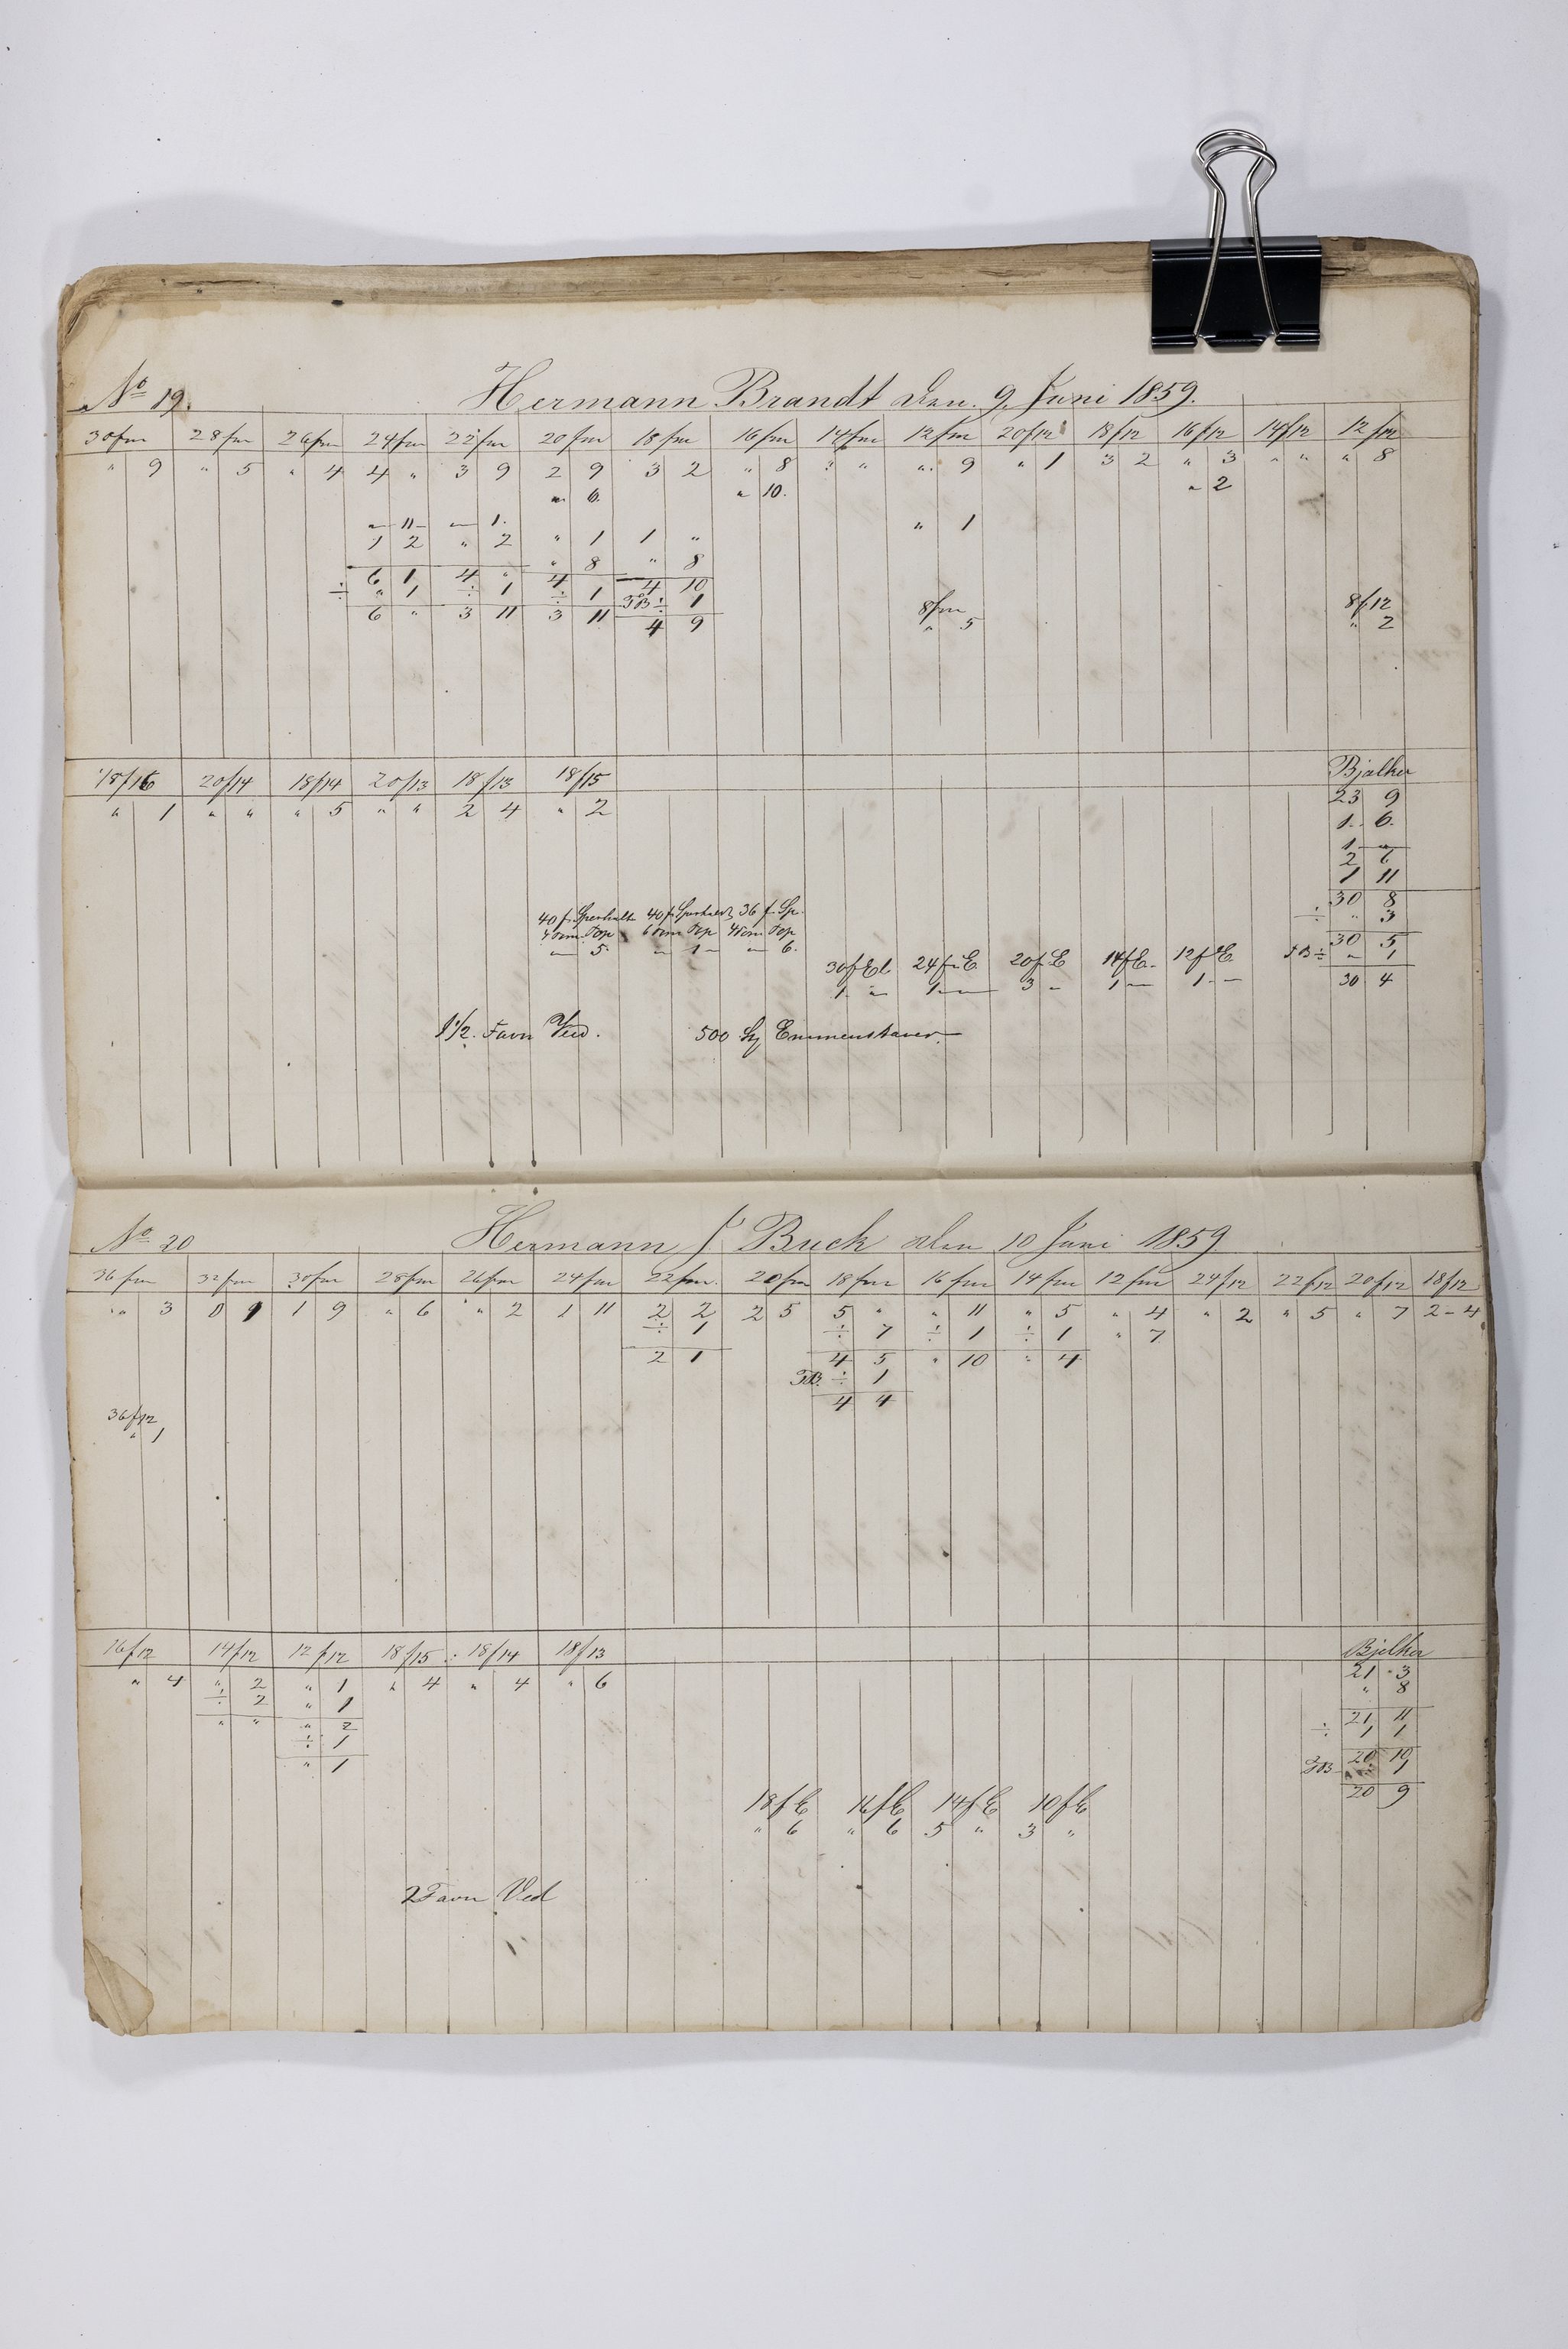 No 19. Hermann Brandt den. 9. Juni 1859.
30 fm 28 fm 26 fm 24 fm 22 fm 20 fm 18 fm 16 fm 14 fm 12 fm 20 f 12 18 f 12 16 f 12 14 f 12 12 f 12
" 9 " 5 " 4 4 " 3 9 2 9 3 2 " 8 " " " 9 " 1 3 2 " 3 " " " 8
" 6. " 10. " 2
" 11 " 1. " 1
1 2 " 2 " 1 1 "
" 8 " 8
6 1 4 " 4 4 10
÷ " 1 ÷ 1 ÷ 1 TB ÷ 1 8 fm 8 f 12
6 " 3 11 3 11 4 9 " 5 " 2
18 f 16 20 f 14 18 f 14 20 f 13 18 f 13 18 f 15 Bjælker
" 1 " " " 5 " " 2 4 " 2 23 9
1 6
1 "
2 6
1 11
40 f 40 f 36 f Sp. 30 8
Top Top Top ÷ " 3
" 5. " 1 " 6. 30 5
30 f El 24 f E 20 f E 14 f E 12 f E TB ÷ " 1
1 " 1 " 3 " 1 " 1 " 30 4
1 1/2. Favn Ved. 500
No 20 Hermann J Buck den 10 Juni 1859
36 fm 32 fm 30 fm 28 fm 26 fm 24 fm 22 fm. 20 fm 18 fm 16 fm 14 fm 12 fm 24 f 12 22 f 12 20 f 12 18 f 12
" 3 0 9 1 9 " 6 " 2 1 11 2 2 2 5 5 " " 11 " 5 " 4 " 2 " 5 " 7 2 - 4
÷ 1 ÷ 7 ÷ 1 ÷ 1 " 7
2 1 4 5 " 10 " 4
TB. ÷ 1
4 4
36 f 12
" 1
16 f 12 14 f 12 12 f 12 18 f 15 18 f 14 18 f 13 Bjelker
" 4 " 2 " 1 " 4 " 4 " 6 21 3
÷ 2 " 1 " 8
" " " 2 21 11
÷ 1 ÷ 1 1
" 1 20 10
TB 1
18 f E 16 f E 14 f E 10 f E 20 9
" 6 " 6 5 " 3 "
2 Favn Ved